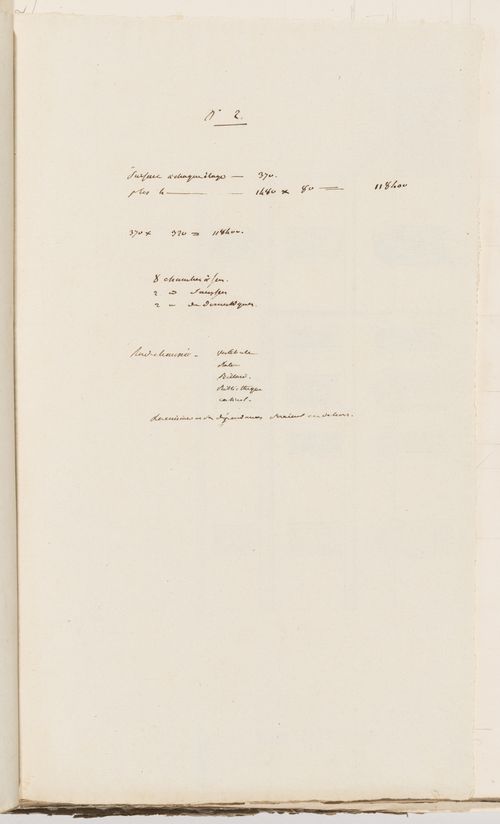 N° 2.
Surface de chaque étage — 370.
plus 4 — — 1480 × 80 = 118400
370 × 320 = 118400.
8 chambres à feu.
2 d°
2 — de Domestiques.
Rez de chaussée — vestibule
Salon
Billard.
Bibliothèque
cabinet.
Les cuisines et les dépendances seraient en dehors.